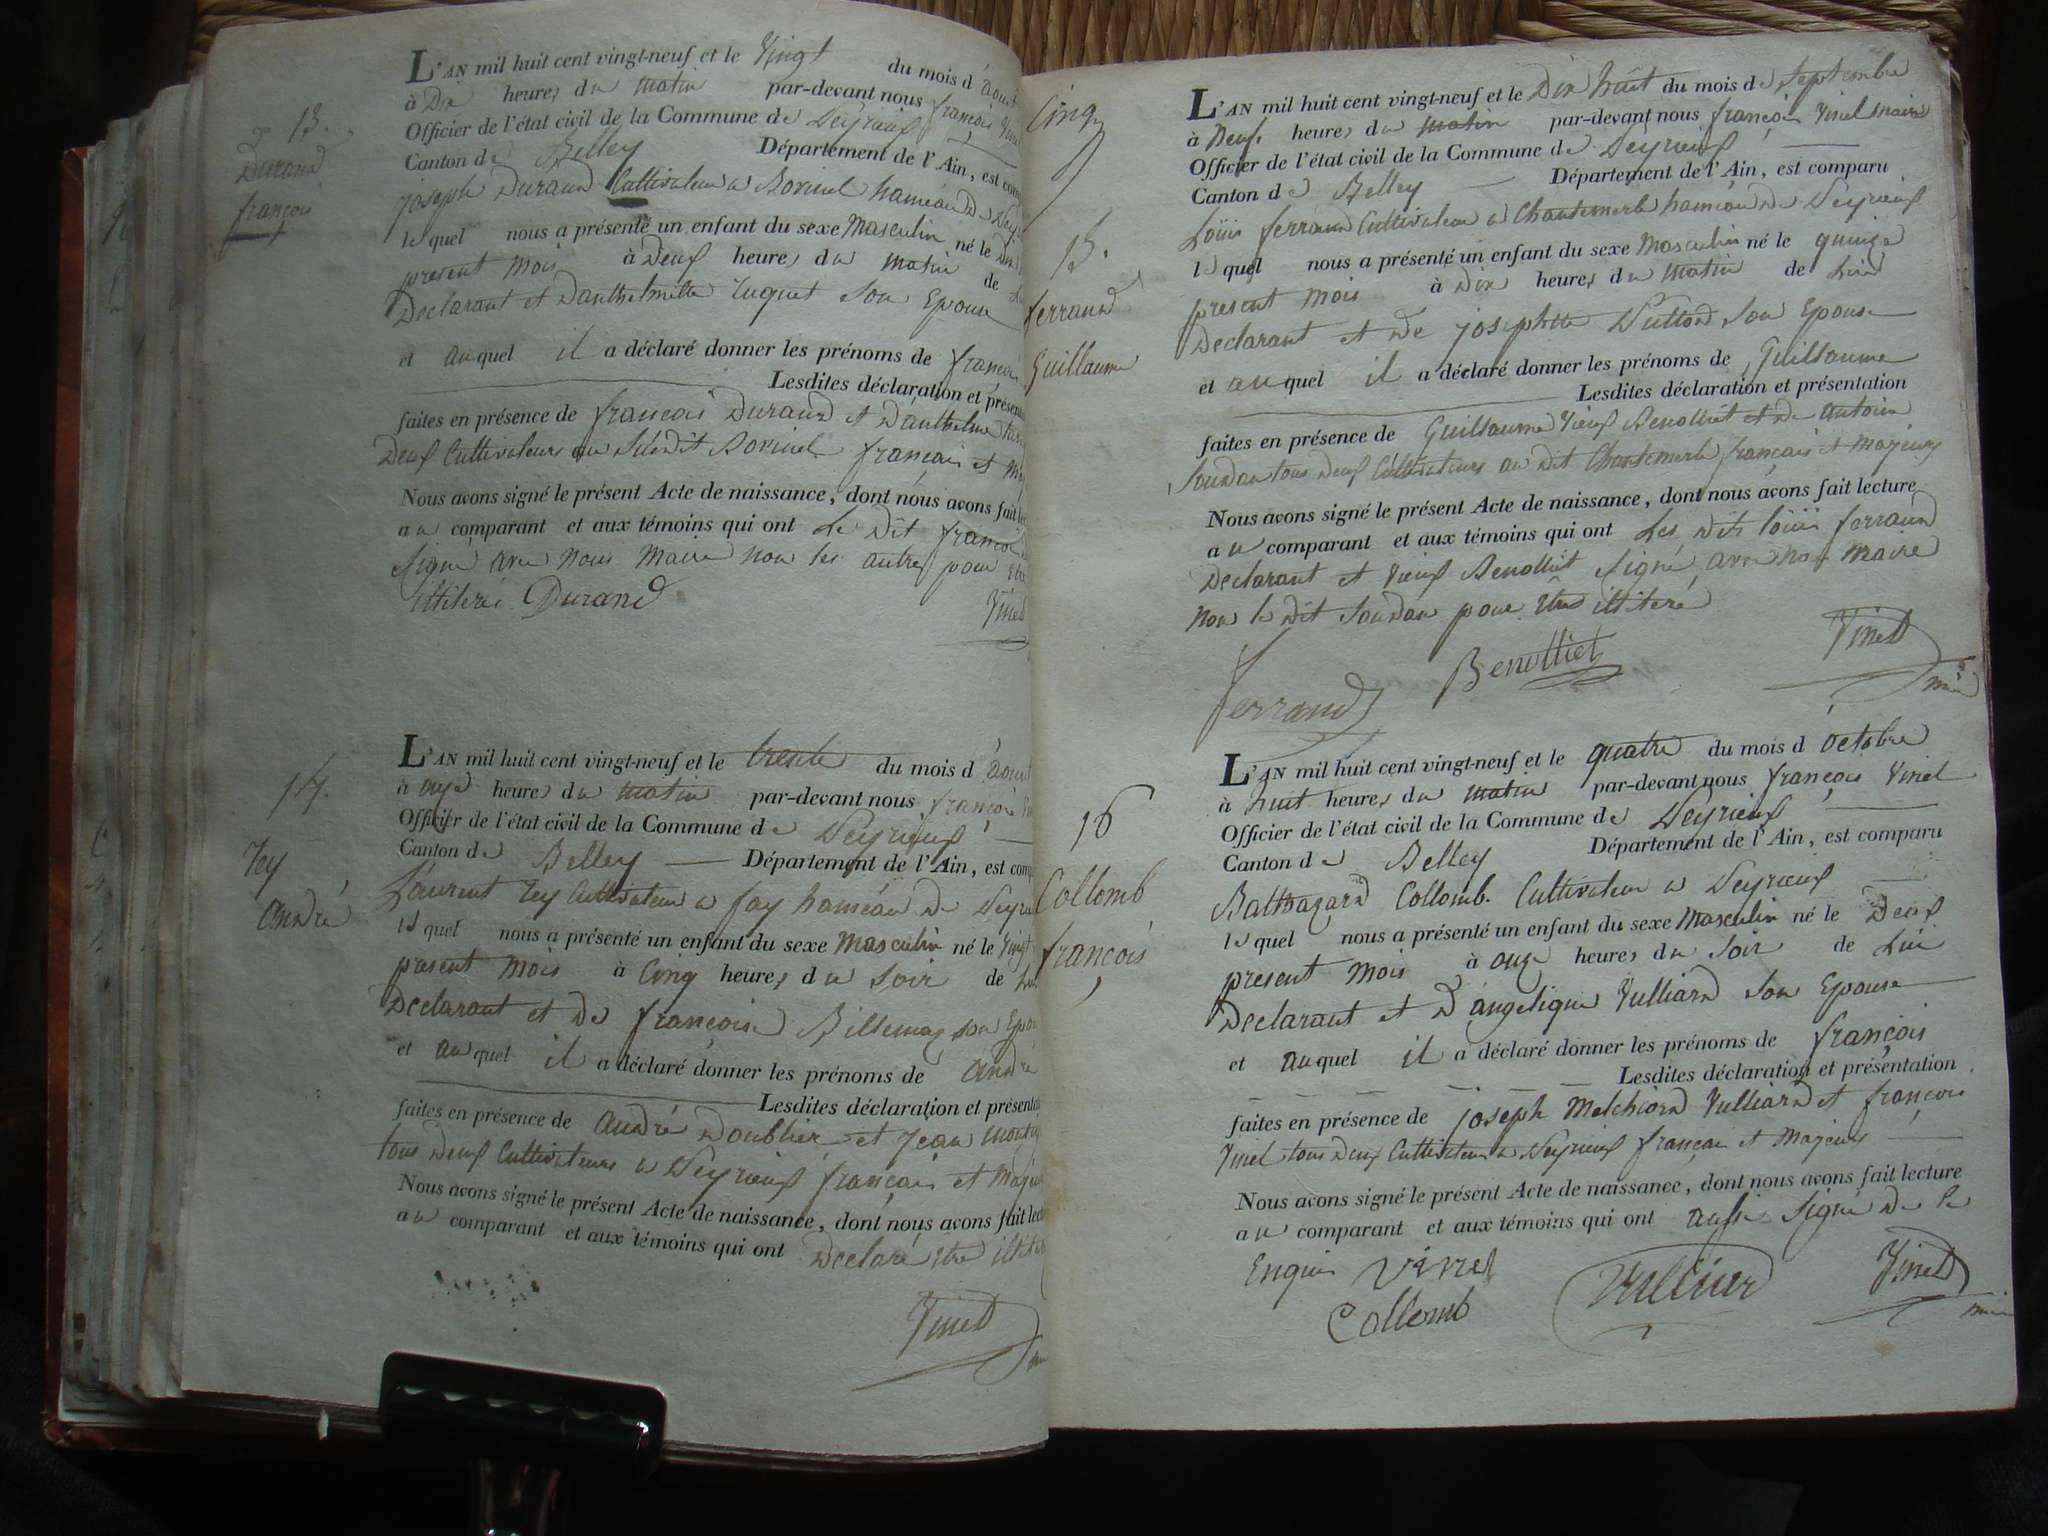 13.
Durand
françois
L'AN mil huit cent vingt-neuf et le Vingt du mois d'août
à Dix heures du matin par-devant nous françois Vinel
Officier de l'état civil de la Commune de Peyrieuf
Canton de Belley Département de l'Ain, est
joseph Durand Cultivateur a hameau de
lequel nous a présenté un enfant du sexe Masculin né le
present mois à Neuf heures du matin de
Declarant et Danthelmette luquet son Epouse
et auquel il a déclaré donner les prénoms de françois
Lesdites déclaration et
faites en présence de francois Durand et Danthelme
Deux Cultivateurs au Susdit francais et
Nous avons signé le présent Acte de naissance, dont nous avons fait
au comparant et aux témoins qui ont Le Dit
Signé avec nous Maire non les autres pour
illiteré Durand
Vinel
14.
Tey
André
L'AN mil huit cent vingt-neuf et le trente du mois d'août
à onze heures du matin par-devant nous françois
Officier de l'état civil de la Commune de Peyrieuf
Canton de Belley Département de l'Ain, est
Laurent Tey Cultivateur a fay hameau de
lequel nous a présenté un enfant du sexe Masculin né le
present mois à Cinq heures du soir de
Declarant et de françoise Billemaz son
et auquel il a déclaré donner les prénoms de André
Lesdites déclaration et
faites en présence de André Doublier et Jean
tous deux Cultivateurs a Peyrieuf francais et
Nous avons signé le présent Acte de naissance, dont nous avons fait
au comparant et aux témoins qui ont Declaré etre
Vinel
Cinq
15.
ferrand
Guillaume
L'AN mil huit cent vingt-neuf et le Dix huit du mois de Septembre
à Neuf heures du matin par-devant nous françois Vinel maire
Officier de l'état civil de la Commune de Peyrieuf
Canton de Belley Département de l'Ain, est comparu
Loüis ferrand Cultivateur a Chantemerle hameau de Peyrieuf
lequel nous a présenté un enfant du sexe Masculin né le quinze
present mois à Dix heures du matin de Lui
Declarant et de josephte Dutton son Epouse
et auquel il a déclaré donner les prénoms de Guillaume
Lesdites déclaration et présentation
faites en présence de Guillaume Vieux Benolliet et de antoine
Soudan tous deux Cultivateurs au dit Chantemerle francais et Majeurs
Nous avons signé le présent Acte de naissance, dont nous avons fait lecture
au comparant et aux témoins qui ont Les dits loüis ferrand
Declarant et Vieux Benolliet Signé avec nous Maire
non le dit Soudan pour etre illiteré
Ferrand Benolliet Vinel
16
Collomb
françois
L'AN mil huit cent vingt-neuf et le quatre du mois d'octobre
à huit heures du matin par-devant nous françois Vinel
Officier de l'état civil de la Commune de Peyrieuf
Canton de Belley Département de l'Ain, est comparu
Balthazard Collomb. Cultivateur a Peyrieuf
lequel nous a présenté un enfant du sexe Masculin né le Deux
present mois à onze heures du soir de Lui
Declarant et D'angelique Vulliard son Epouse
et auquel il a déclaré donner les prénoms de françois
Lesdites déclaration et présentation
faites en présence de joseph Melchiord Vulliard et françois
Vinel tous deux Cultivateurs a Peyrieuf francais et Majeurs
Nous avons signé le présent Acte de naissance, dont nous avons fait lecture
au comparant et aux témoins qui ont aussi Signé de ce
Enquis Vinel Vinel
Collomb